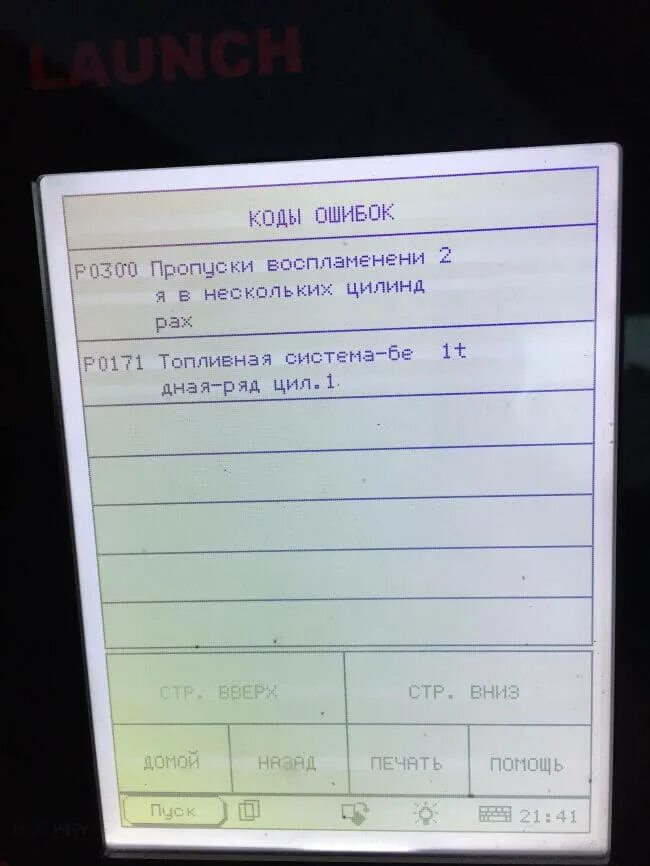 LAUNCH
КОДЫ ОШИБОК
P0300 Пропуски воспламенени 2
я в нескольких цилинд
рах
P0171 Топливная система-бе 1t
дная-ряд цил.1
СТР. ВВЕРХ СТР. ВНИЗ
ДОМОЙ НАЗАД ПЕЧАТЬ ПОМОЩЬ
Пуск 21:41